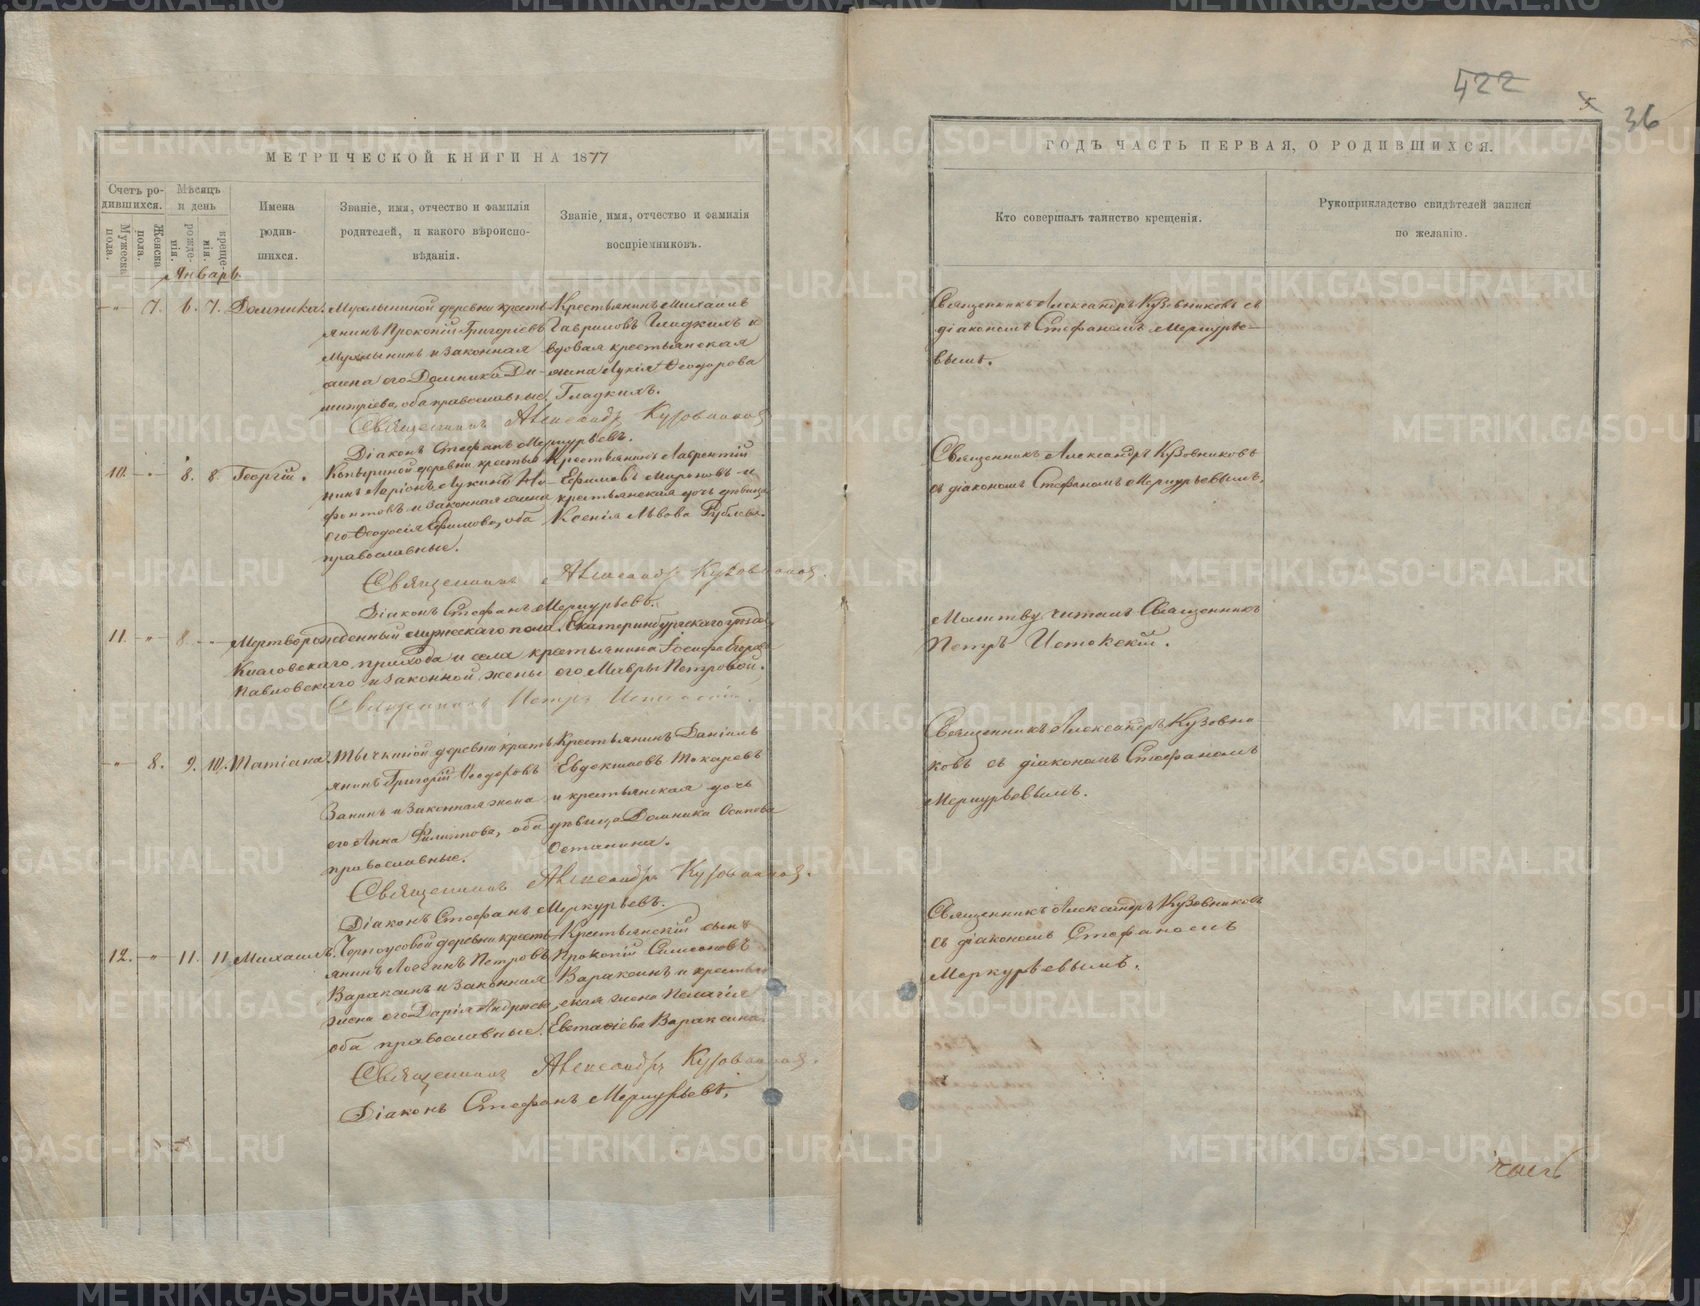 422
36
МЕТРИЧЕСКОЙ КНИГИ НА 1877
Счетъ ро-
дившихся.
Мужеска пола.
Женска пола.
Мѣсяцъ
и день
рожде-
нія.
креще-
нія.
Имена
родив-
шихся.
Званіе, имя, отчество и фамилія
родителей, и какого вѣроиспо-
вѣданія.
Званіе, имя, отчество и фамилія
воспріемниковъ.
Январь.
-"- 7. 6. 7. Домника.
деревни кресть-
янинъ Прокопій Григорьевъ
и законная
жена его Домника Ди-
митріева, оба православные.
Крестьянинъ Михаилъ
Гавриловъ Гладкихъ и
вдовая крестьянская
жена Лукія Ѳеодорова
Гладкихъ.
Священникъ Александръ Кузовниковъ
Діаконъ Стефанъ Меркурьевъ.
10. -"- 8. 8 Георгій.
Копыриной деревни кресть-
нинъ Ларіонъ Лукинъ
и законная жена
его Ѳеодосія Ефимова, оба
православные.
Крестьянинъ Лаврентій
Ефимовъ Мироновъ и
крестьянская дочь дѣвица
Ксенія Львова Рублева.
Священникъ Александръ Кузовниковъ.
Діаконъ Стефанъ Меркурьевъ.
11. -"- 8. -"- Мертворожденный мужескаго пола. Екатеринбургскаго уѣзда,
прихода и села крестьянина Іосифа
Павловскаго и законной жены его Мавры Петровой.
Священникъ Петръ Истокскій.
-"- 8. 9. 10. Татіана.
Тычкиной деревни кресть-
янинъ Григорій Ѳеодоровъ
Занинъ и законная жена
его Анна Филиппова, оба
православные.
Крестьянинъ Даніилъ
Евдокимовъ Токаревъ
и крестьянская дочь
дѣвица Домника Осипова
Останина.
Священникъ Александръ Кузовниковъ.
Діаконъ Стефанъ Меркурьевъ.
12. -"- 11. 11. Михаилъ.
Черноусовой деревни кресть-
янинъ Логинъ Петровъ
Вараксинъ и законная
жена его Дарія Андреева,
оба православные.
Крестьянскій сынъ
Прокопій Симеоновъ
Вараксинъ и крестьян-
ская жена Пелагія
Евстафіева Вараксина.
Священникъ Александръ Кузовниковъ.
Діаконъ Стефанъ Меркурьевъ.
ГОДЪ ЧАСТЬ ПЕРВАЯ, О РОДИВШИХСЯ.
Кто совершалъ таинство крещенія.
Рукоприкладство свидѣтелей записи
по желанію.
Священникъ Александръ Кузовниковъ съ
діакономъ Стефаномъ Меркурье-
вымъ.
Священникъ Александръ Кузовниковъ
съ діакономъ Стефаномъ Меркурьевымъ.
Молитву читалъ Священникъ
Петръ Истокскій.
Священникъ Александръ Кузовни-
ковъ съ діакономъ Стефаномъ
Меркурьевымъ.
Священникъ Александръ Кузовниковъ
съ діакономъ Стефаномъ
Меркурьевымъ.
METRIKI.GASO-URAL.RU